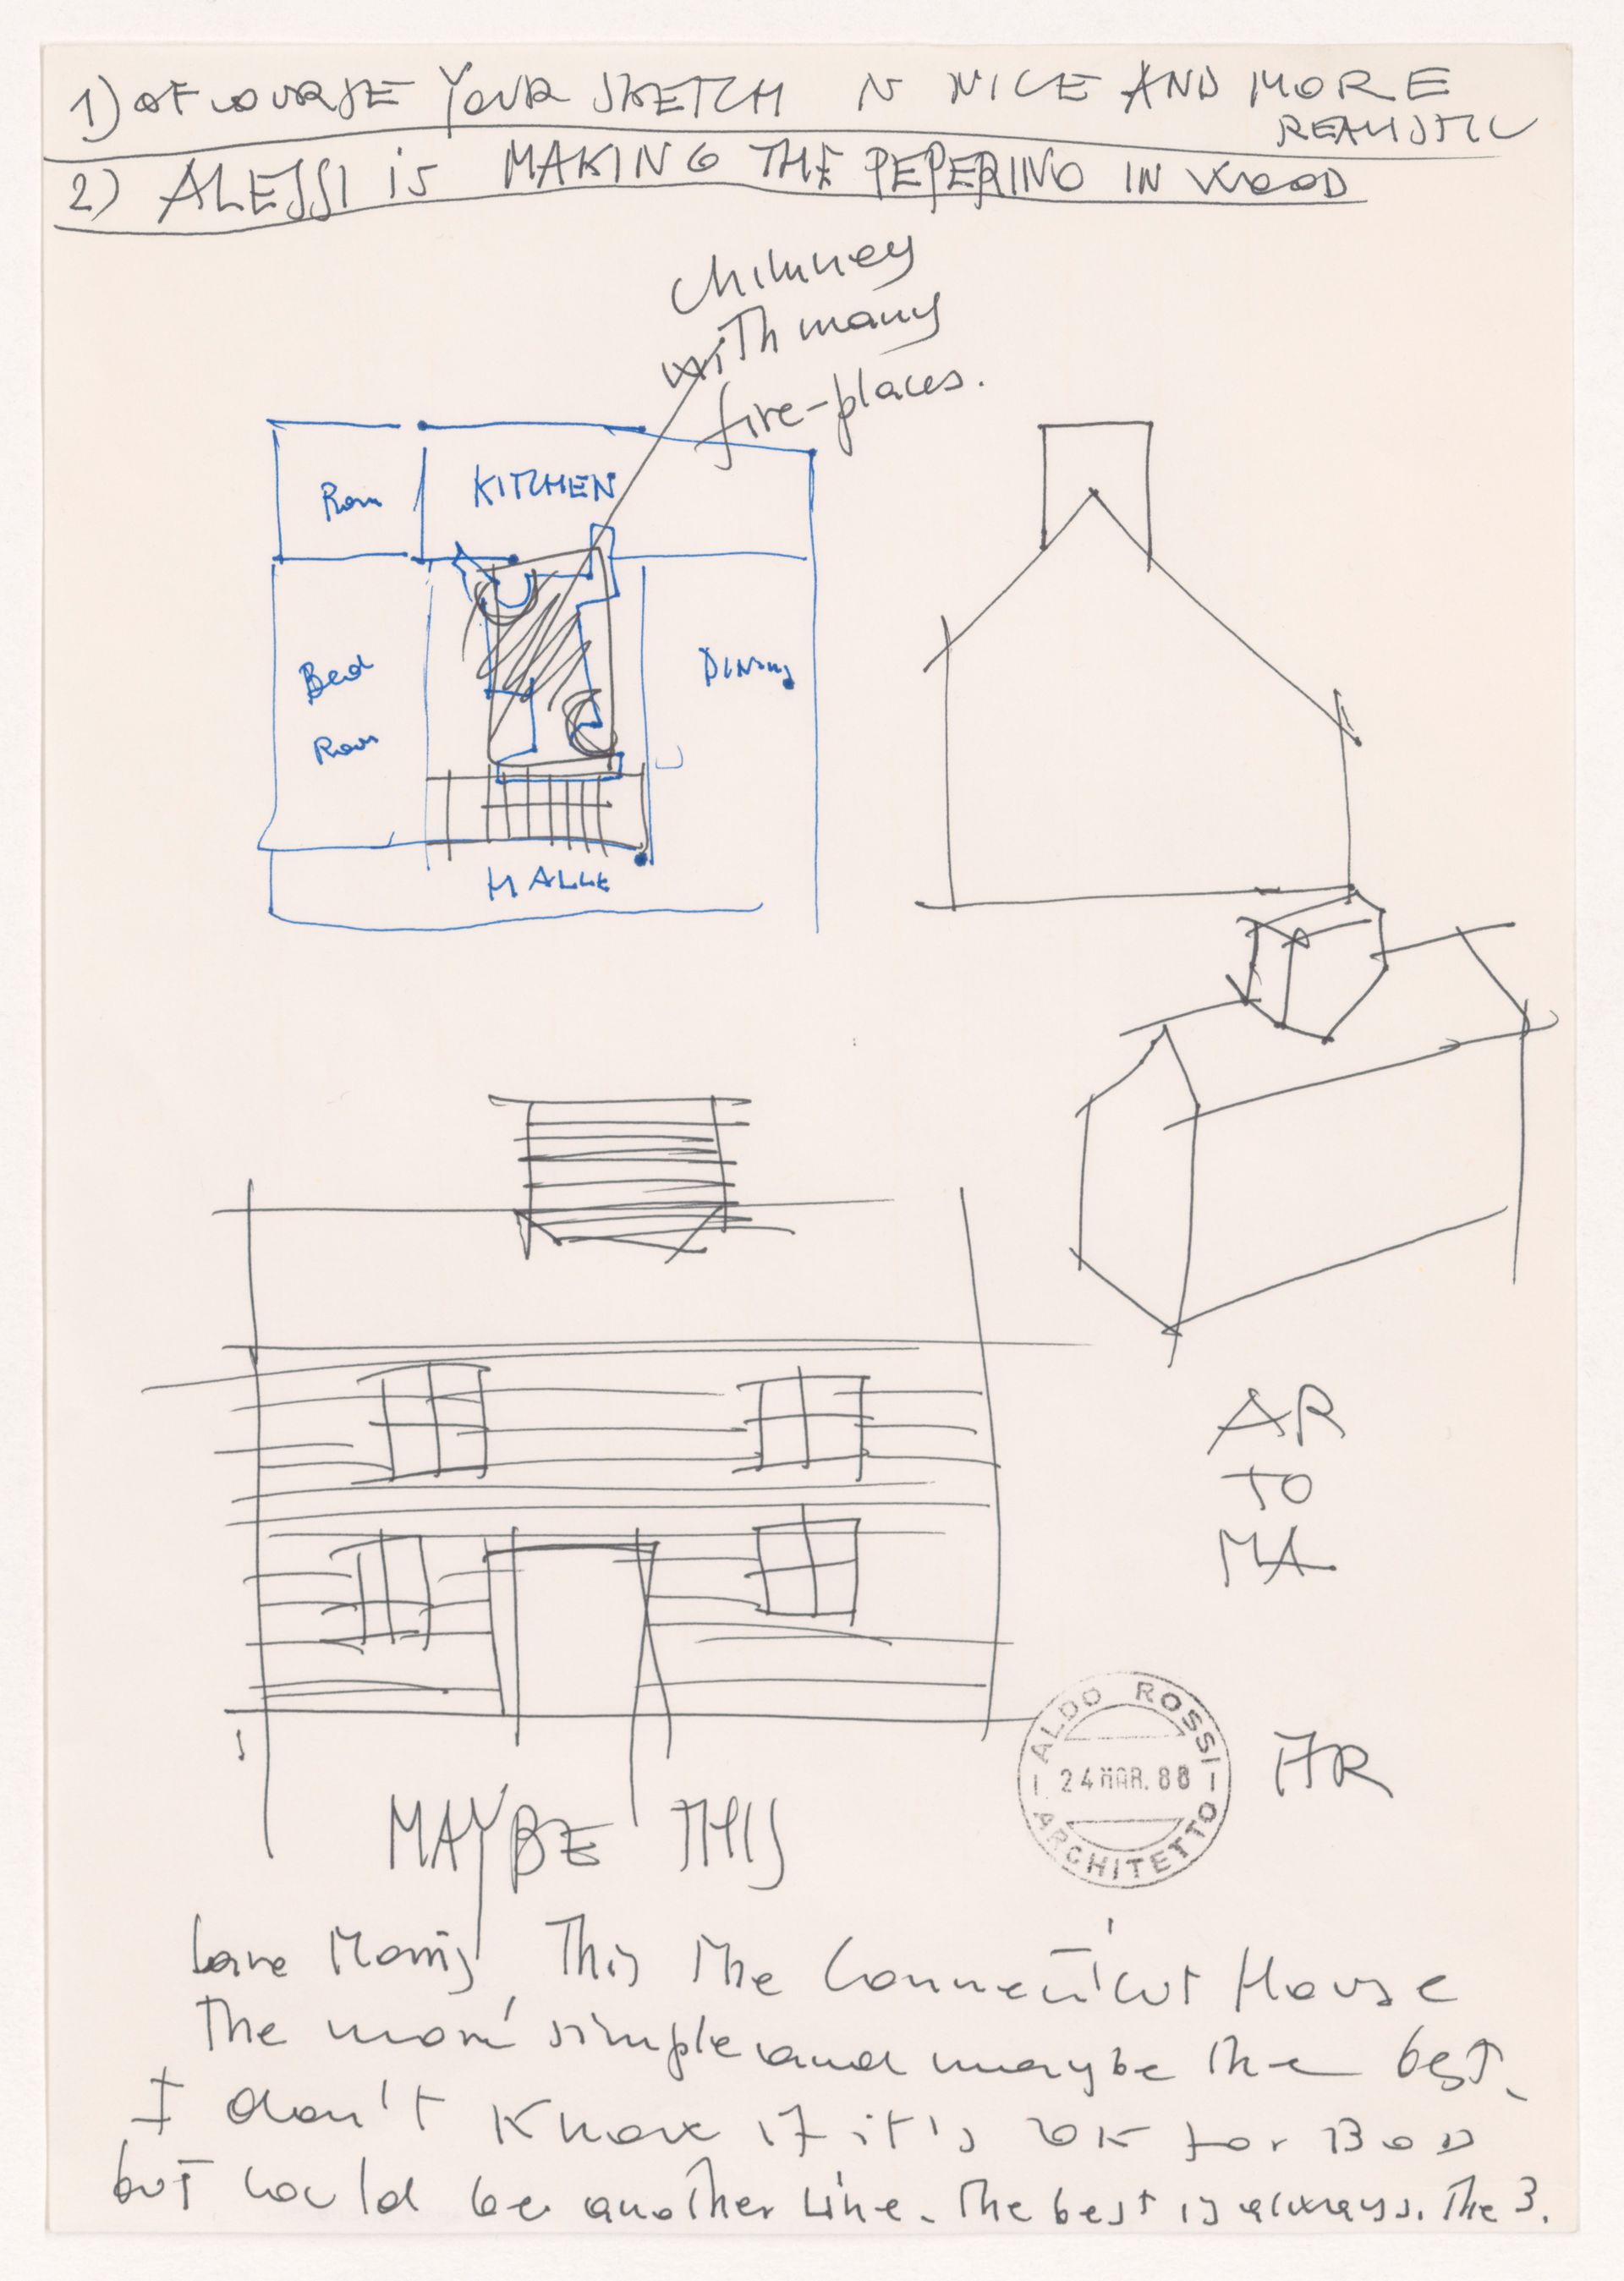 1) OF COURSE YOUR SKETCH IS NICE AND MORE
REALISTIC
2) ALESSI is MAKING THE PEPERINO IN WOOD
chimney
with many
fire-places.
Rom KITCHEN
Bed
Rom
DINING
HALLE
AR
TO
MA
ALDO ROSSI
24 MAR. 88
ARCHITETTO
AR
MAYBE THIS
Morris, This the Connecticut House
The more simple and maybe the best.
I don't know if it's OK for BOD
but could be another line. The best is always. The 3.